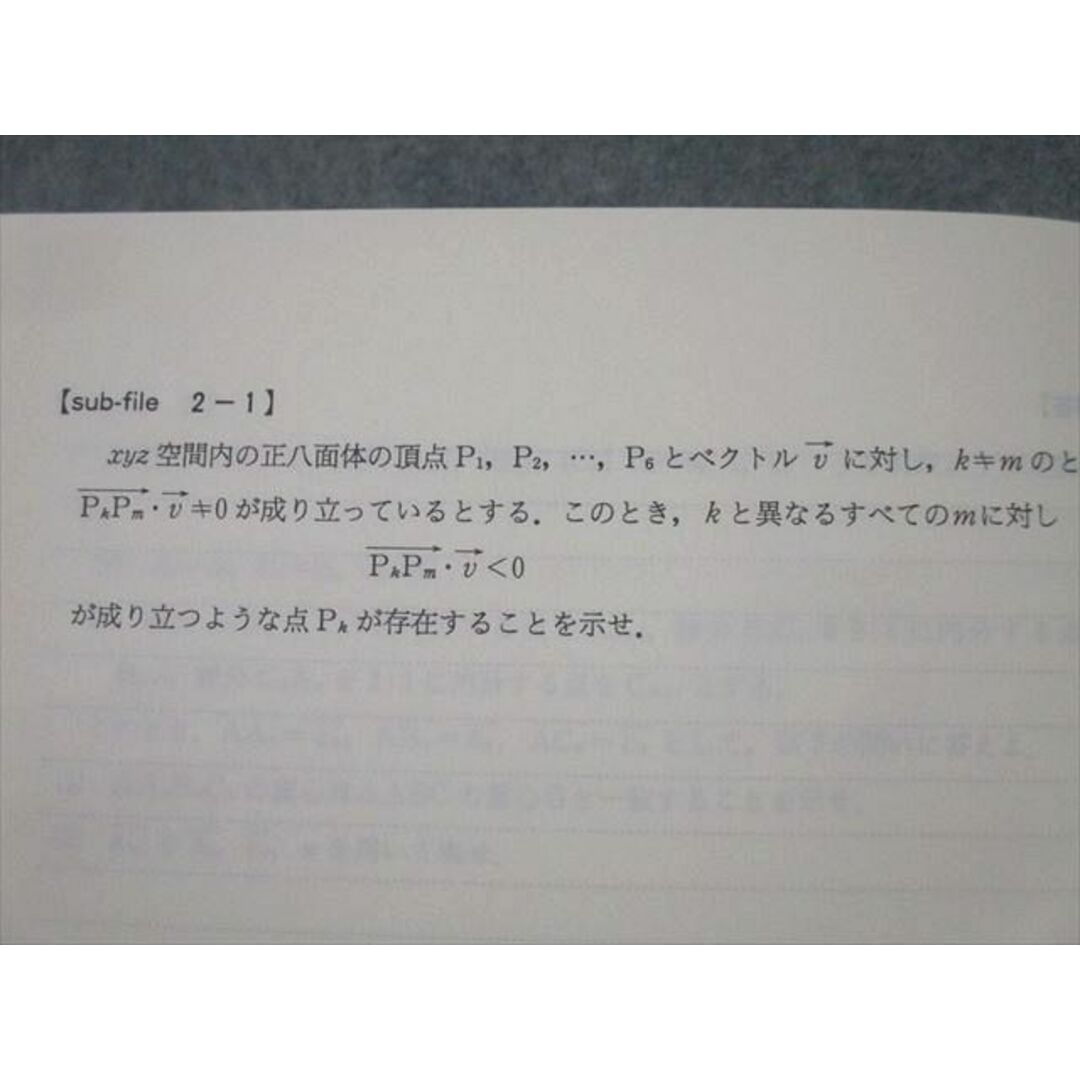 【sub-file 2－1】
xyz空間内の正八面体の頂点P₁，P₂，…，P₆とベクトル$\vec{v}$に対し，k≠mのと
$\overrightarrow{P_kP_m}$・$\vec{v}$≠0が成り立っているとする．このとき，kと異なるすべてのmに対し
$\overrightarrow{P_kP_m}$・$\vec{v}$<0
が成り立つような点P_kが存在することを示せ．